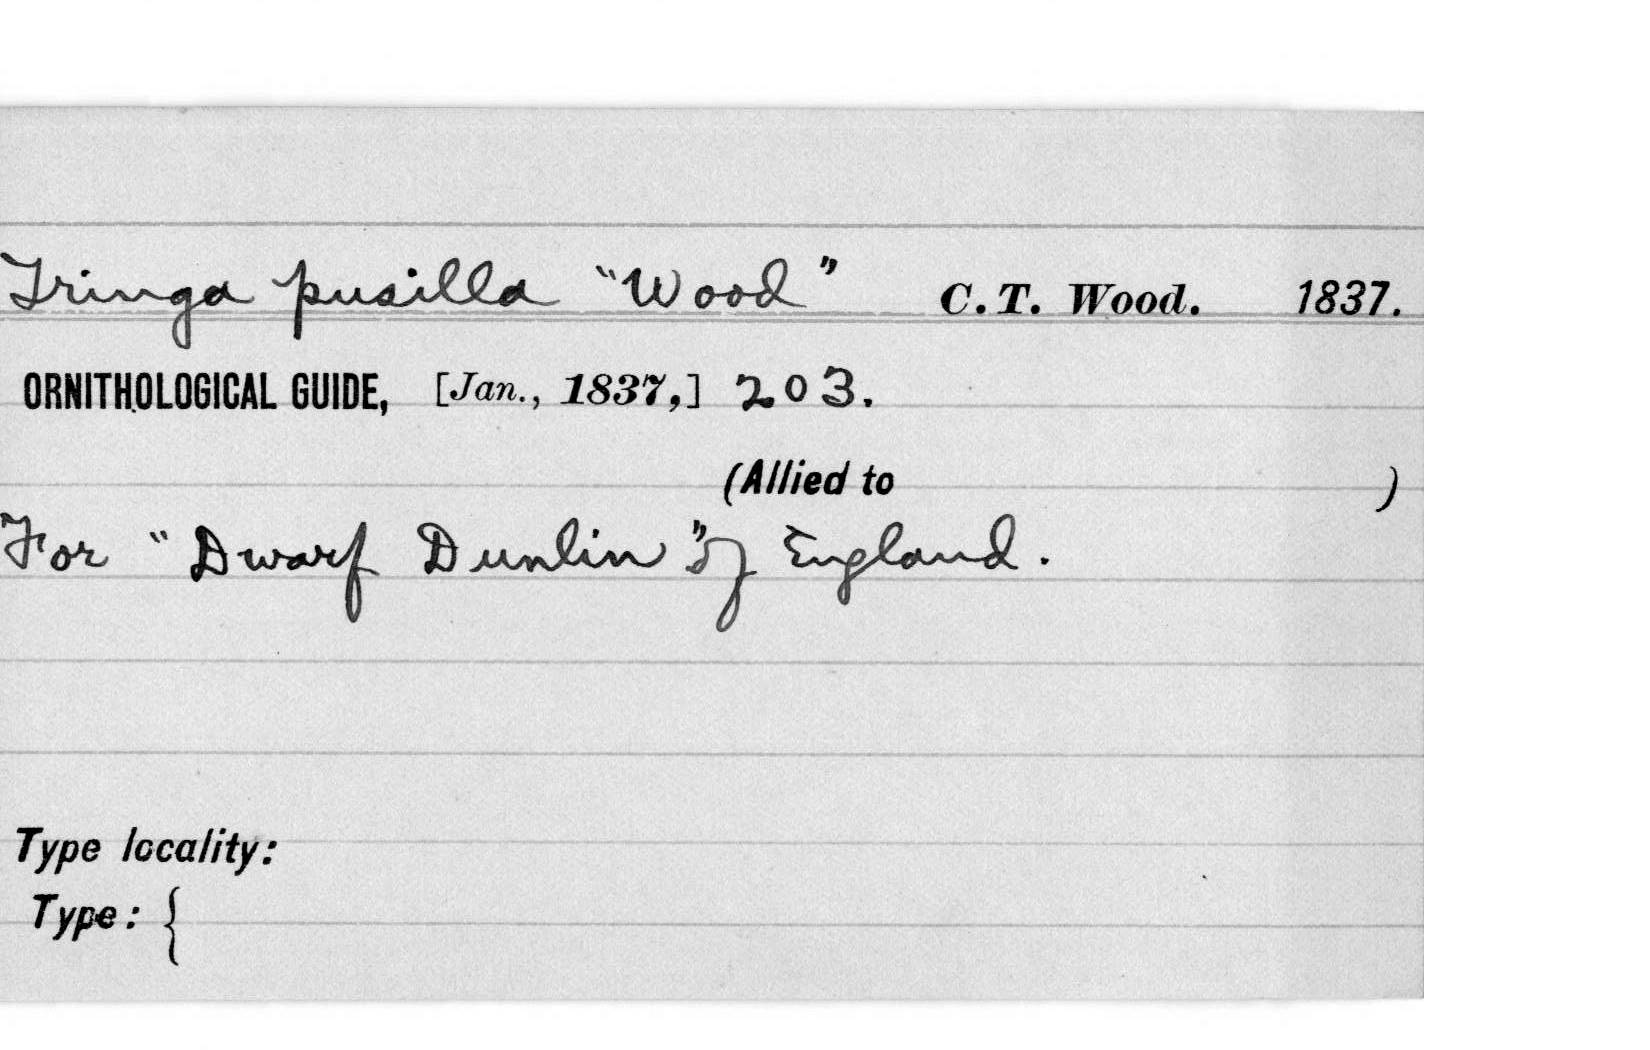 Tringa pusilla "Wood" C. T. Wood. 1837.
ORNITHOLOGICAL GUIDE, [Jan., 1837,] 203.
(Allied to )
For "Dwarf Dunlin" of England.
Type locality:
Type: {